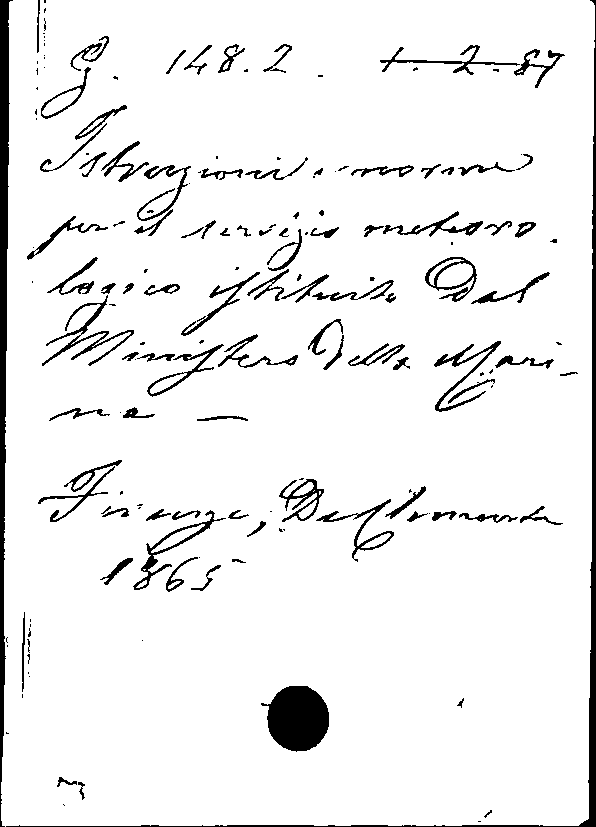 G. 148.2. 1. 2. 87
Istruzioni e norme
per il servizio meteoro.
logico istituito dal
Ministero della Mari-
na —
Firenze, De Clemente
1865